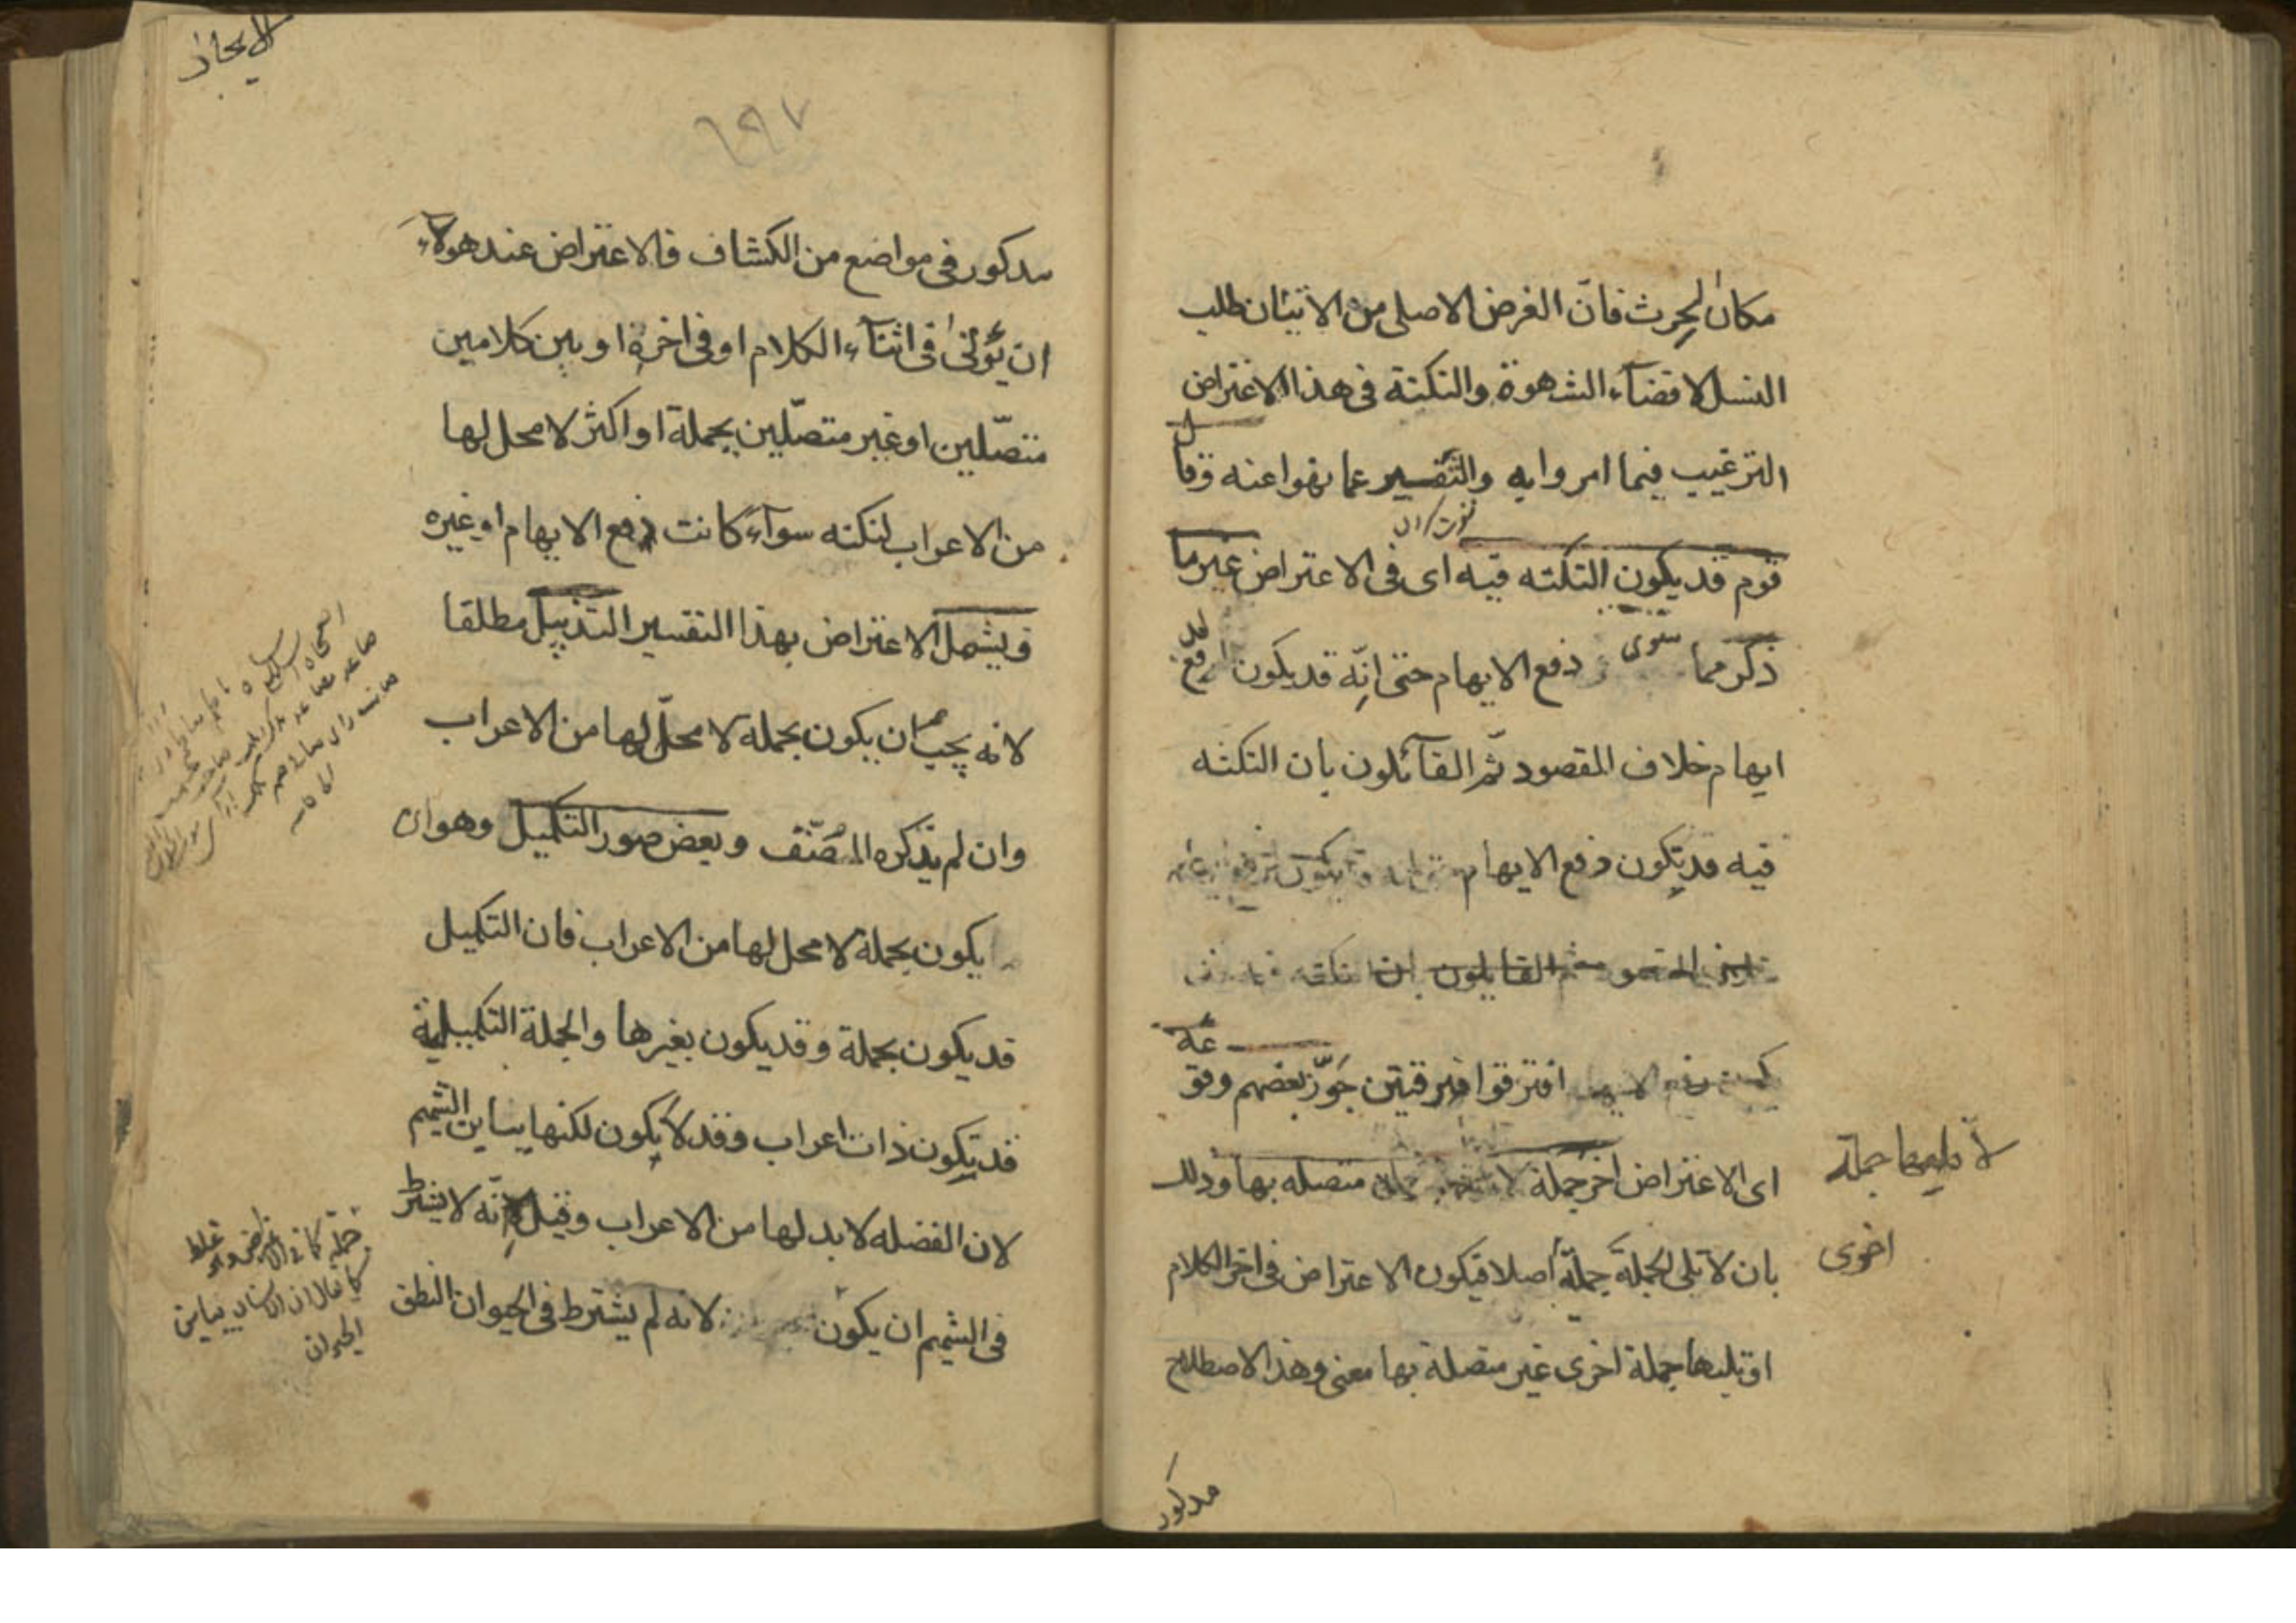 مكان الحرث فانّ الغرض الاصلى من الاتيان طلب
النسل لا قضآء الشهوة والنكتة فى هذا الاعتراض
الترغيب فيما امروا به والتنفير عما نهوا عنه وقال
قوم قد يكون النكته فيه اى فى الاعتراض غير ما
ذكر مما سوى دفع الايهام حتى انّه قد يكون لدفع
ايهام خلاف المقصود ثم القآئلون بان النكته
فيه قد يكون دفع الايهام
ثم القايلون بان النكته
افترقوا فرقتين جوّز بعضهم وقوعه
اى الاعتراض اخر جملة لا متصله بها وذلك
لا تليها جملة
بان لا تلى الجملة جملة اصلا فيكون الاعتراض فى اخر الكلام
اخرى
او تليها جملة اخرى غير متصلة بها معنى وهذا الاصطلاح
مذكور
الايجاز
١٩٧
مذكور فى مواضع من الكشاف فالاعتراض عند هولاء
ان يؤتى فى اثنآء الكلام او فى اخره او بين كلامين
متصّلين او غير متصّلين بجملة او اكثر لا محل لها
من الاعراب لنكته سوآء كانت دفع الايهام او غيره
فيشمل الاعتراض بهذا التفسير التذييل مطلقا
لانه يجب ان يكون بجمله لا محلّ لها من الاعراب
وان لم يذكره المصنّف وبعض صور التكميل وهو ان
يكون بجملة لا محل لها من الاعراب فان التكميل
قد يكون بجملة وقد يكون بغيرها والجملة التكميلية
قد يكون ذات اعراب وقد لا يكون لكنها يباين التتميم
لان الفضله لا بد لها من الاعراب وقيل لانّه لا يشترط
فى التتميم ان يكون لانه لم يشترط فى الحيوان النطق
كما يقال ان الانسان يباين
الحيوان